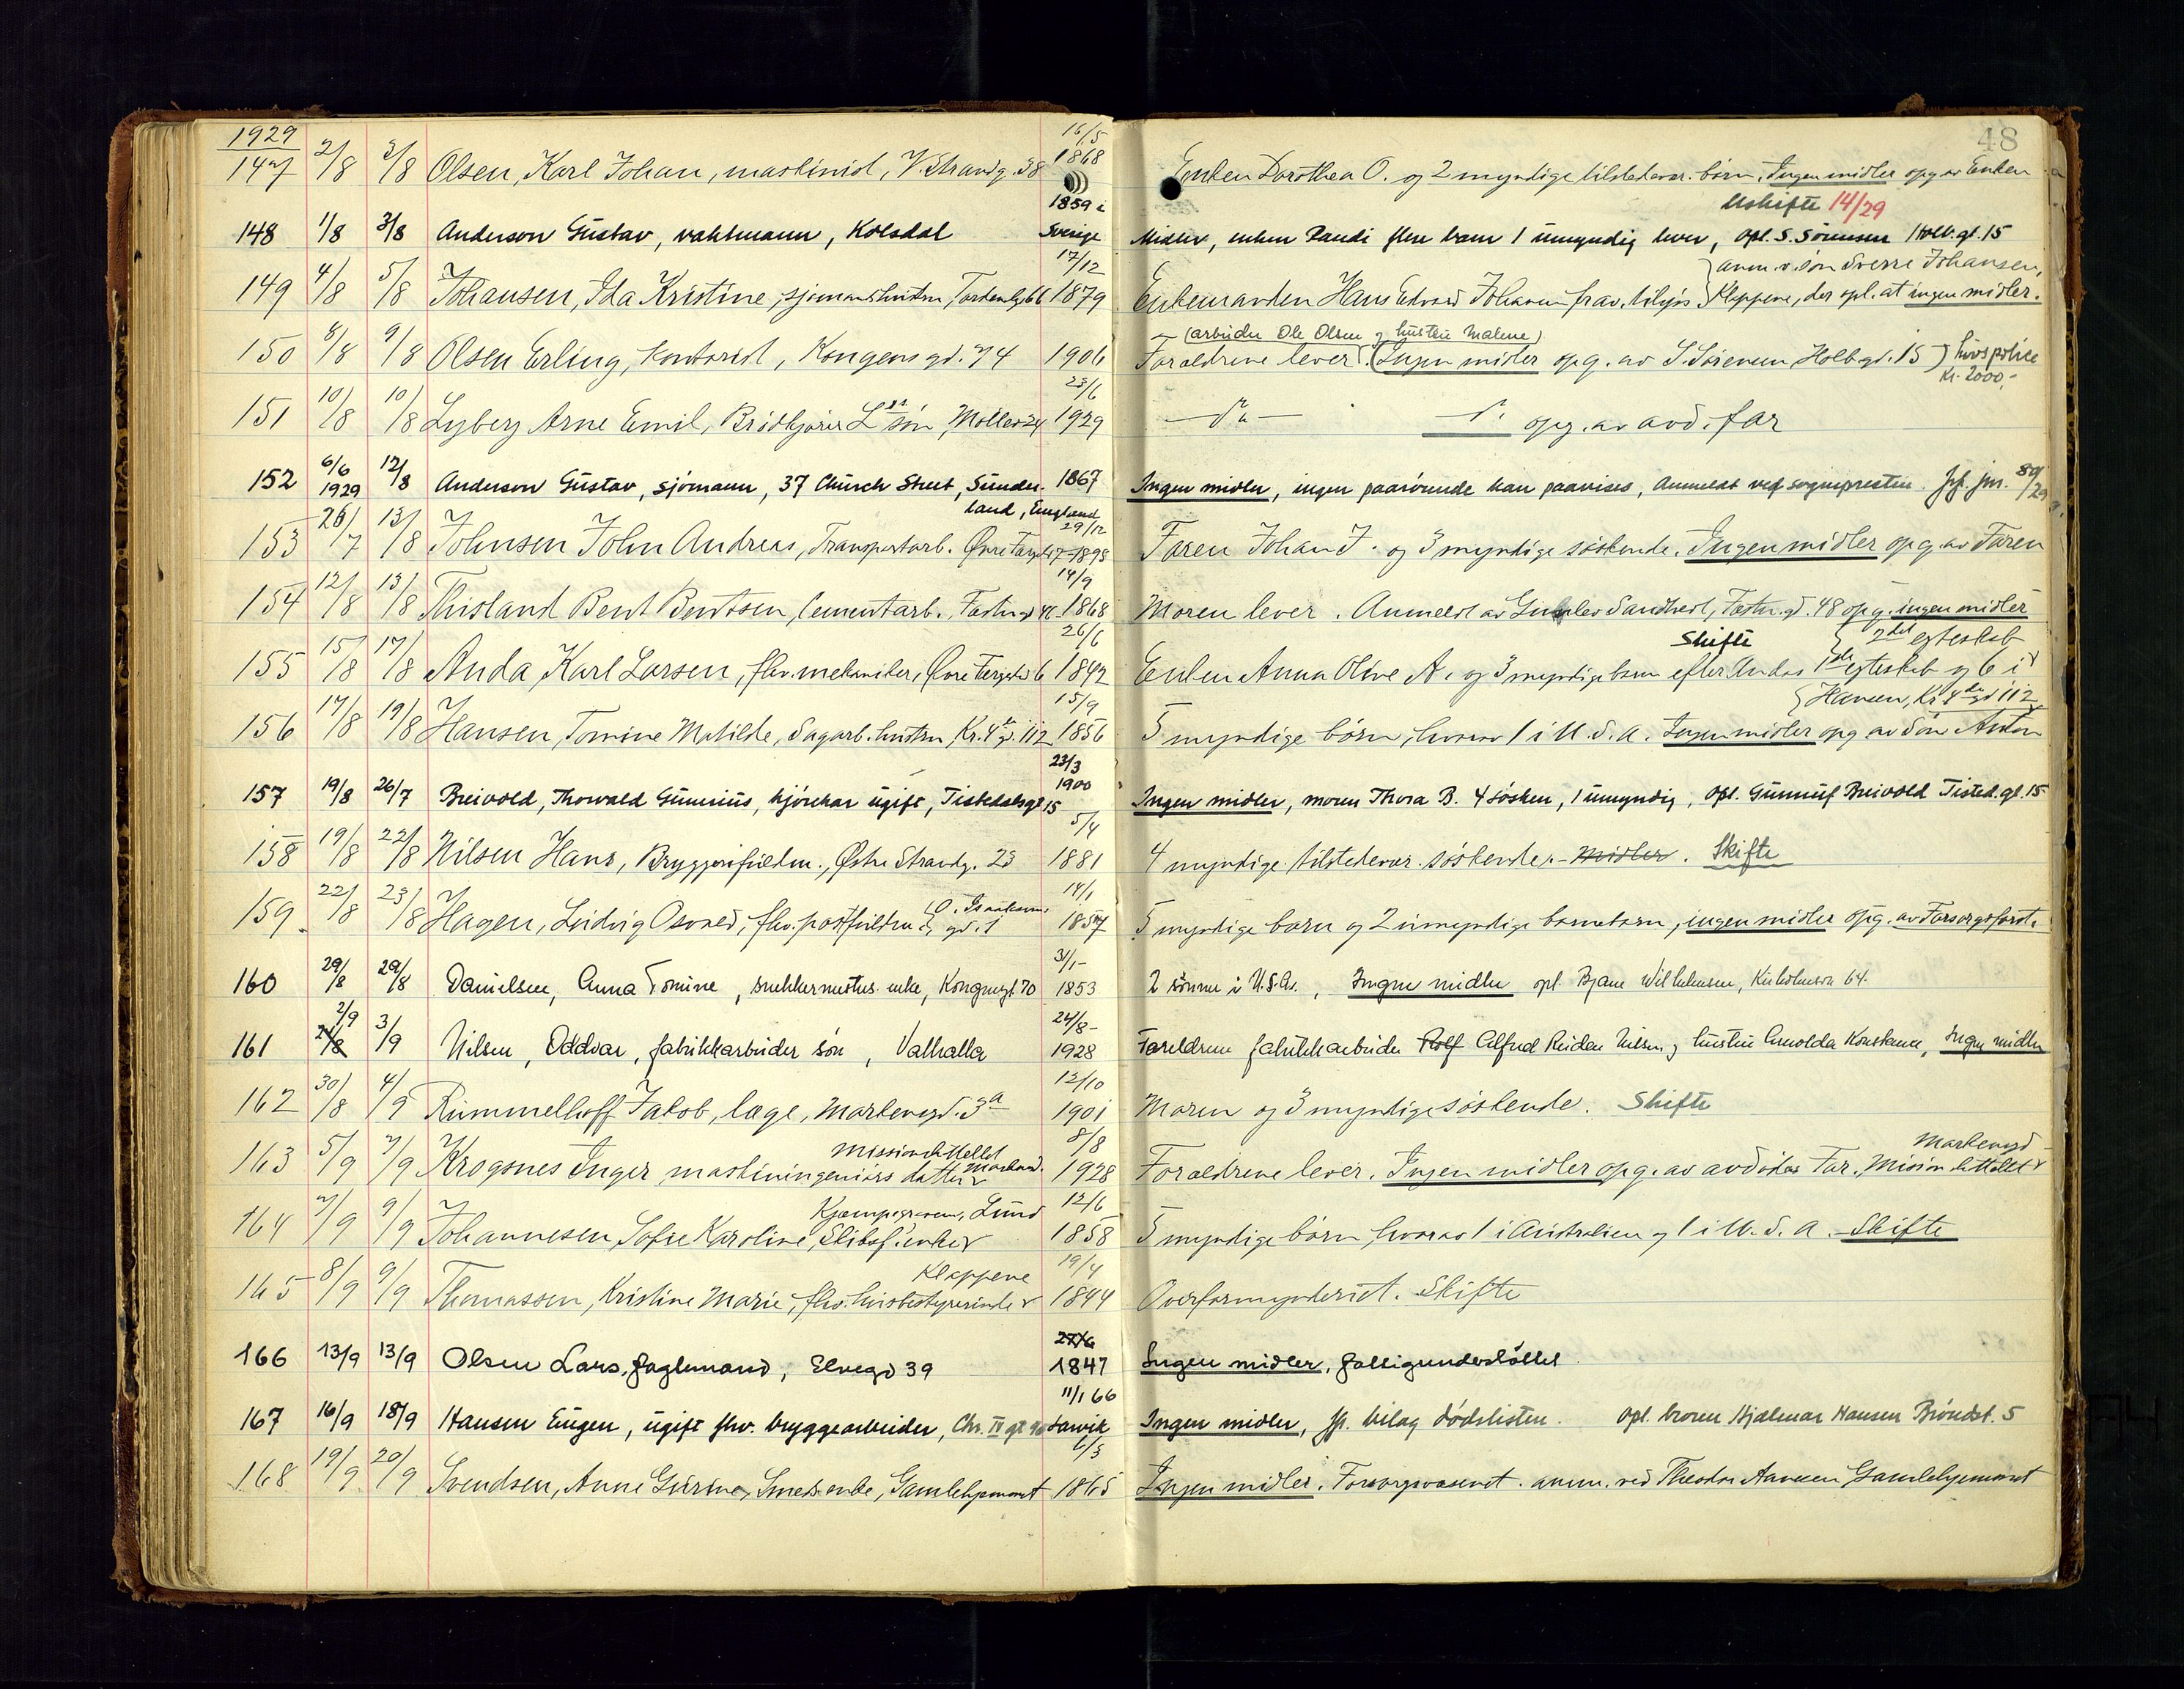 1929
48
147 2/8 3/8 Olsen, Karl Johan, maskinist, V. Strandg. 38 16/5 1868 Enken Dorothea O. og 2 myndige tilstedevær. børn. Ingen midler opg. av Enken
Uskifte 14/29
148 1/8 3/8 Anderson Gustav, vaktmann, Kolsdal 1859 i Sverige Midler, enken Randi flere barn 1 umyndig lever, opl. S. Sørensen Holb.gt. 15
149 4/8 5/8 Johansen, Ida Kristine, sjømandshustru, Tordenskj. 66 17/12 1879 Enkemanden Hans Edvard Johansen frav. tilsjøs
anm. v. søn Sverre Johansen,
Kleppene, der opl. at ingen midler.
(arbeider Ole Olsen og hustru Malene)
150 8/8 9/8 Olsen Erling, kontorist, Kongens gd. 74 1906 Forældrene lever. Ingen midler opg. av S. Sørensen Holbgt. 15 livspolice
Kr. 2000,-
151 10/8 10/8 Lyberg Arne Emil, Brødkjører L søn, Møller 24 23/6 1929 opg. av avd. far
152 6/6 1929 12/8 Anderson Gustav, sjømann, 37 Church Street, Sunder- 1867 Ingen midler, ingen paarørende kan paavises, Anmeldt ved sogneprestin. Jfr. jnr. 80/29
land, England
153 26/7 13/8 Johnsen John Andreas, Transportarb. Øvre Torvgt 17 29/12 1898 Faren Johan J. og 3 myndige søskende. Ingen midler opg. av Faren
154 12/8 13/8 Thisland Bent Bentsen, Cementarb., Festn.gd 48 14/9 1868 Moren lever. Anmeldt av Gunlev Sandvest, Festn.gd. 48 opg. ingen midler
Skifte
2det egteskab
155 15/8 17/8 Anda Karl Larsen, fhv. mekaniker, Øvre Torvgt 6 26/6 1842 Enken Anna Olive A. og 3 myndige barn efter Andas 1ste egteskab og 6 i
Hansen, Kr. 4des gd 112
156 17/8 19/8 Hansen, Tomine Matilde, Sagarb. hustru, Kr. 4des gd. 112 15/9 1856 5 myndige børn, hvorav 1 i U.S.A. Ingen midler opg av søn Anton
157 19/8 26/7 Breivold, Thorvald Gunerius, kjørekar ugift, Tistedalsgt 15 23/3 1900 Ingen midler, moren Thora B. 4 søsken, 1 umyndig, opl. Gunnulf Breivold Tisted.gt. 15
158 19/8 22/8 Nilsen Hans, Bryggerifuldm., Østre Strandg. 23 5/4 1881 4 myndige tilstedevær. søskende. - Midler. Skifte
159 22/8 23/8 Hagen, Ludvig Osvald, fhv. postfuldm. O. Isaaksens gd. 1 14/1 1857 5 myndige børn og 2 umyndige barnebarn, ingen midler opg. av Forsorgsforst.
160 29/8 29/8 Danielsen, Anna Tomine, snekkermesters enke, Kongensgt. 70 31/1- 1853 2 sønner i U.S.A., Ingen midler opl. Bjarne Wilhelmsen, Kirkholmsvn 64.
161 21/8 2/9 3/9 Nilsen, Oddvar, fabrikkarbeider søn, Valhalla 24/8- 1928 Foreldrene fabrikkarbeider Rolf Alfred Reidar Nilsen og hustru Arnolda Konstance, Ingen midler
162 30/8 4/9 Rummelhoff Jakob, læge, Markensgd. 3a 12/10 1901 Moren og 3 myndige søskende. Skifte
Missionshotellet Markend.
163 5/9 7/9 Krogsnes Inger maskiningeniørs datter 8/8 1928 Forældrene lever. Ingen midler opg. av avdødes Far. Mission hotellet
Markensgd
Kjempegraven, Lund
164 7/9 9/9 Johannesen, Sofie Karoline, Skibsf. enke 12/6 1858 5 myndige børn, hvorav 1 i Australien og 1 i U.S.A. - Skifte
Kleppene
165 8/9 9/9 Thomassen, Kristine Marie, fhv. husbestyrerinde 19/4 1844 Overformynderiet. Skifte
166 13/9 13/9 Olsen Lars, faglemand, Elvegd 39 27/6 1847 Ingen midler, fattigunderstøttet
167 16/9 18/9 Hansen Eugen, ugift fhv. bryggearbeider, Chr. IV gt 90 11/1 66 Larvik Ingen midler, jfr. bilag dødslisten. Opl. broren Hjalmar Hansen Brøndst. 5
168 19/9 20/9 Svendsen, Anne Gurine, Smeds enke, Gamlehjemmet 6/3 1865 Ingen midler. Forsorgsvæsenet. anm. ved Theodor Aanesen Gamlehjemmet